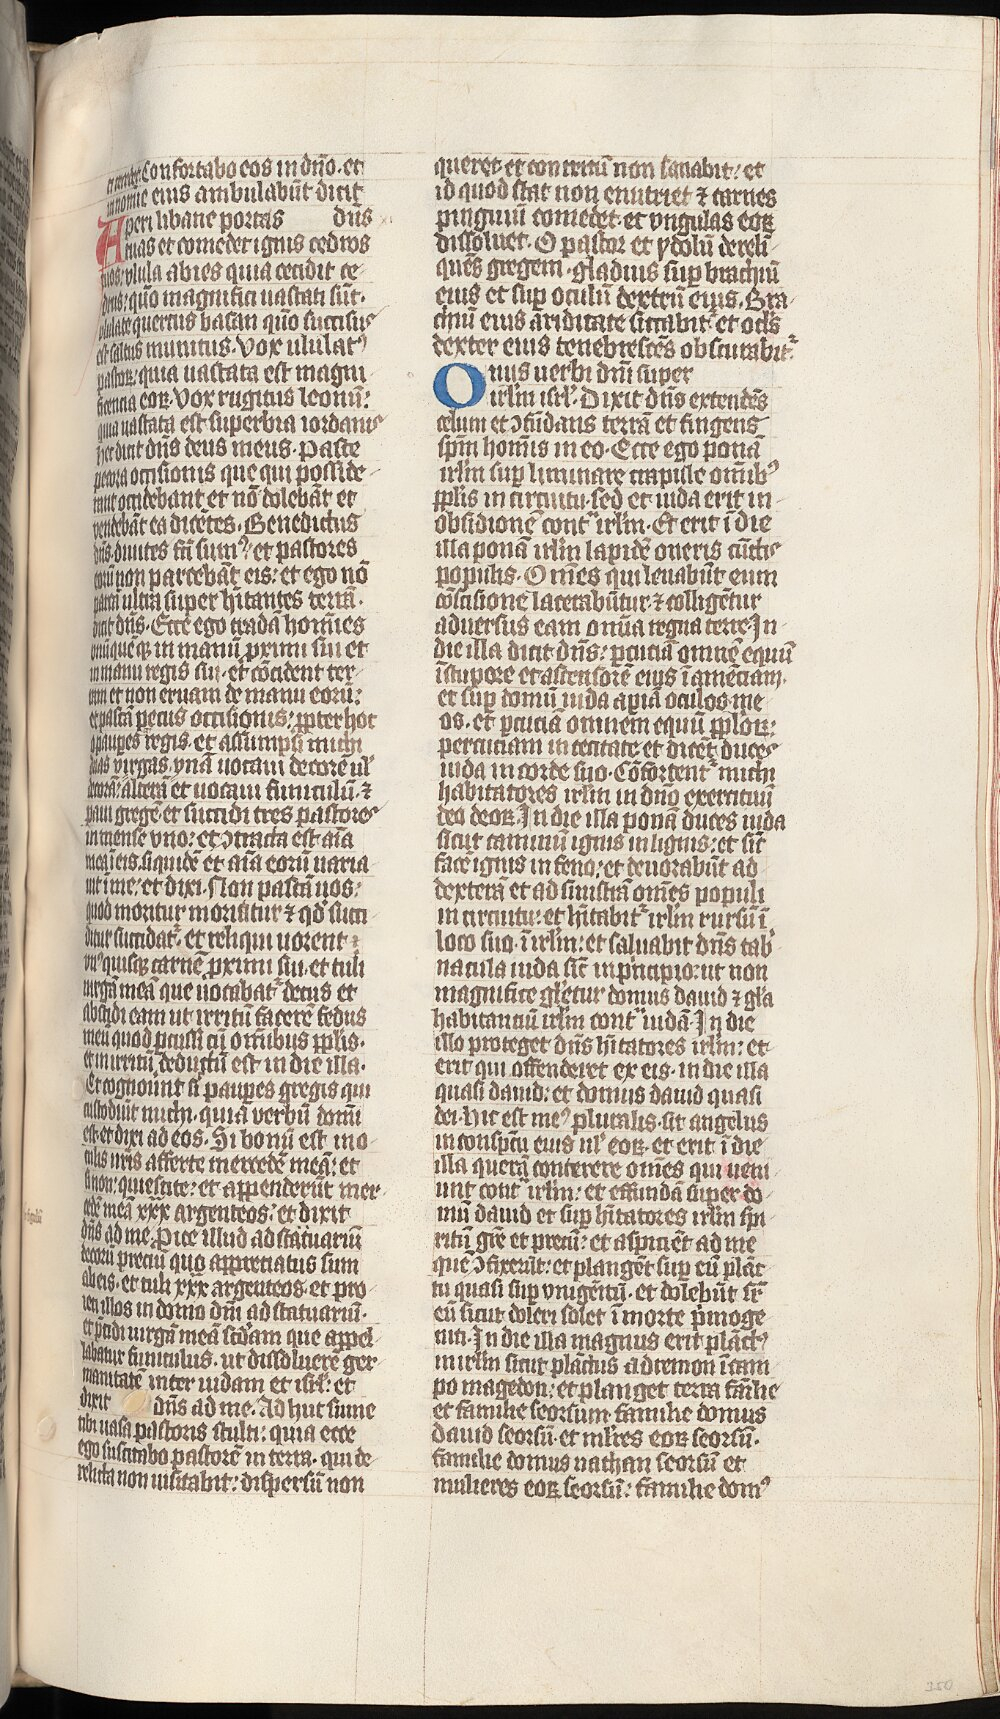 Confortabo eos in dño. et
in noĩe eius ambulabũt dicit
Aperi libane portas dñs
tuas et comedet ignis cedros
tuos. ulula abies quia cecidit ce-
drus: quo magnifici uastati sũt.
ululate quercus basan quõ succisus
est saltus munitus. Vox ululatꝰ
pastoꝝ: quia uastata est magni
ficencia eoꝝ. Vox rugitus leonũ:
quia uastata est superbia iordanis
hec dicit dñs deus meus. Pasce
pecora occisionis que qui posside-
rant occidebant et nõ dolebãt et
vendebãt ea dicẽtes. Benedictus
dñs. diuites fcĩ sumꝰ: et pastores
eorũ non parcebãt eis: et ego nõ
parcã ultra super hĩtantes terrã.
dicit dñs. Ecce ego tradã homines
unũquẽqꝫ in manũ proximi sui et
in manu regis sui. et cõcident ter-
ram et non eruam de manu eorũ:
et pascã pecus occisionis: ꝓpter hoc
o paupes gregis. et assumpsi michi
duas virgas. vnã uocaui decorẽ ul̕
decorã: alterã et uocaui funiculũ. ⁊
paui gregẽ et succidi tres pastores
in mense vno: et ↄtracta est aĩa
mea ĩ eis. siquidẽ et aĩa eorũ uaria
uit ĩ me: et dixi. Non pascã uos:
quod moritur moriatur ⁊ qd̕ succi
ditur succidatᷣ. et reliqui uorent
vnꝰquisqꝫ carnẽ ꝓximi sui. et tuli
uirgã meã que uocabatᷣ decus et
abscidi eam ut irritũ facerẽ fedus
meũ quod ꝑcussi cũ omĩbus ꝓplis.
et in irritũ deductũ est in die illa.
Et cognouũt sĩ paupes gregis qui
custodiũt michi. quia verbũ domĩ
est. et dixi ad eos. Si bonũ est in o-
culis uris afferte mercedẽ meã: et
si non: quiescite: et appenderũt mer-
cedẽ meã xxx argenteos: et dixit
dñs ad me. Pice illud ad statuariũ
decorũ preciũ quo appreciatus sum
ab eis. et tuli xxx argenteos. et pro
ieci illos in domo dñi ad statuariũ.
et p̃cidi uirgã meã scdam que appel-
labatur funiculus. ut dissoluerẽ ger-
manitatẽ inter iudam et isrl̕: et
dixit dñs ad me. Adhuc sume
tibi uasa pastoris stulti: quia ecce
ego suscitabo pastorẽ in terra. qui de-
relicta non uisitabit: dispersũ non
queret. et contritũ non sanabit: et
id quod stat non enutriet ⁊ carnes
pinguiũ comedet. et vngulas eoꝝ
dissoluet. O pastor et ydolũ dereli-
quẽs gregem. gladius suꝑ brachiũ
eius et suꝑ oculũ dextrũ eius. Bra-
chiũ eius ariditate siccabitᷣ et oclꝰs
dexter eius tenebrescẽs obscurabitᷣ
Onus uerbi dñi super
irlm̃ isrl̕. Dixit dñs extendẽs
celum et ↄfũdans terrã et fingens
spm̃ homĩs in eo. Ecce ego ponã
irlm̃ suꝑ liminare crapule omĩbꝰ
ꝓplis in circuitu. sed et iuda erit in
obsidionẽ contᵃ irlm̃. Et erit ĩ die
illa ponã irlm̃ lapidẽ oneris cũctis
populis. Omẽs qui leuabũt eum
cõscisione lacerabũtur. ⁊ colligẽtur
aduersus eam om̃ia regna terre. In
die illa dicit dñs: ꝑcuciã omnẽ equũ
ĩ stupore et ascensorẽ eius ĩ amẽciam.
et suꝑ domũ iuda apiã oculos me
os. et ꝑcuciã omnem equũ ꝓploꝝ:
percuciam in cecitate et dicẽt duces
iuda in corde suo. Cõfortentᷣ michi
habitatores irlm̃ in dño exercituũ
deo deoꝝ. In die illa ponã duces iuda
sicut caminũ ignis in lignis: et sic̃
facẽ ignis in feno: et deuorabũt ad
dexterã et ad sinistrã omẽs populi
in circuitu: et hĩtabitᷣ irlm̃ rursũ ĩ
loco suo. ĩ irlm̃: et saluabit dñs tab̕
nacula iuda sic̃ in pͥncipio: ut non
magnifice gl̕etur domus dauid ⁊ gl̕a
habitanciũ irlm̃ contᵃ iudã. In die
illo proteget dñs hĩtatores irlm̃: et
erit qui offenderet ex eis. in die illa
quasi dauid: et domus dauid quasi
dei. hic est meꝰ pluralis. sic̃ angelus
in conspctũ eius ul̕ eoꝝ. et erit ĩ die
illa querã conterere omẽs qui ueni
unt contᵃ irlm̃: et effundã super do
mũ dauid et suꝑ hĩtatores irlm̃ spi
ritũ grẽ et precũ: et aspiciẽt ad me
quẽ ↄfixerũt: et plangẽt suꝑ eũ plãc
tu quasi suꝑ vnigenitũ. et dolebũt sr̃
eũ sicut doleri solet ĩ morte pͥmoge
niti. In die illa magnus erit plãctꝰ
in irlm̃ sicut plãctus adremon ĩ cam
po magedon: et planget terra fãilie
et familie seorsum. familie domus
dauid seorsũ. et ml̕ies eoꝝ seorsũ.
familie domus nathan seorsũ et
mulieres eoꝝ seorsũ: familie domꝰ
350